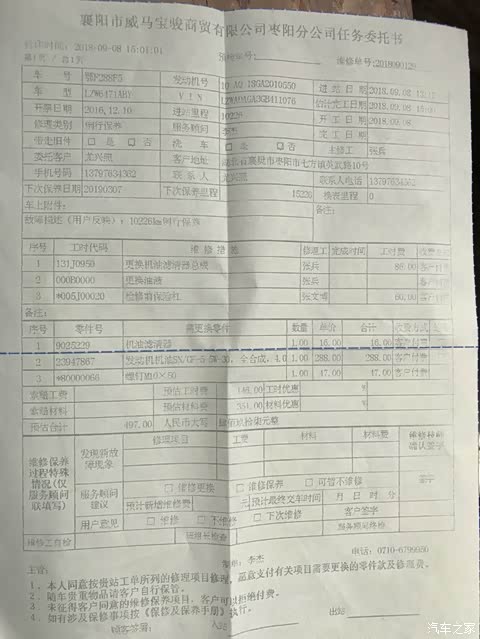 襄阳市威马宝骏商贸有限公司枣阳分公司任务委托书
打印时间: 2018-09-08 15:01:01
第1页 / 共1页
维修单号:
车 号 发动机号 进 站 日 期
车 型 V I N 估计完工日期
开票日期 2016.12.10 进站里程 10226 开 工 日 期
修理类别 例行保养 服务顾问 李杰 完 工 日 期
带走旧件 □ 是 □ 否 洗 车 □ 是 □ 否 主修工 张兵
委托客户 龙兴照 客户地址 湖北省襄樊市枣阳市七方镇英武路10号
手机号码 13797634362 联 系 人 龙兴照 联系人电话 13797634362
下次保养日期 20190307 下次保养里程 15226 换表里程 0
车上附件:
故障描述(用户反映): 10226km例行保养
备注:
序号 工时代码 维 修 措 施 修理工 完成时间 工时费
1 131J0950 更换机油滤清器总成 张兵
2 000B0000 更换油液 张兵
3 *005J00020 检修前保险杠 张文博 60.00
备注:
序号 零件号 需更换零件 数量 单价 合计 收费方式
1 9025229 机油滤清器 1.00 16.00 16.00 客户付费
2 23947867 发动机机油SN/GF-5 5W-30, 全合成, 4.0 1.00 288.00 288.00 客户付费
3 *80000066 螺钉M10×50 1.00 47.00 47.00 客户付费
索赔工费 预估工时费 146.00 工时优惠
索赔材料 预估材料费 351.00 材料优惠
预估合计 497.00 人民币大写 肆佰玖拾柒元整
维修保养过程特殊情况(仅服务顾问联填写)
发现新故障现象 修理项目 工费 材料 材料费
服务顾问建议 □ 维修更换 □ 维修保养 □ 可暂不维修
预计新增维修费 元 预计最终交车时间 月 日 时 分
用户意见 □ 维修 □ 不维修 □ 下次维修 客户签字
维修工自检 班组长检查 服务顾问终检
制单: 李杰 电话: 0710-6799950
主管:
1 、本人同意按贵站工单所列的修理项目修理, 愿意支付有关项目需要更换的零件款及修理费。
2 、随车贵重物品请客户自行保管。
3 、未征得客户同意的维修保养项目, 客户可以拒绝付费。
4 、如有涉及保修事项按《保修及保养手册》执行。
顾客签署: 入站 出站
汽车之家